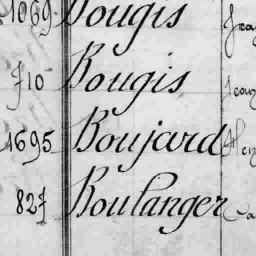 1069 Bougis
710 Bougis
1695 Boujard
827 Boulanger